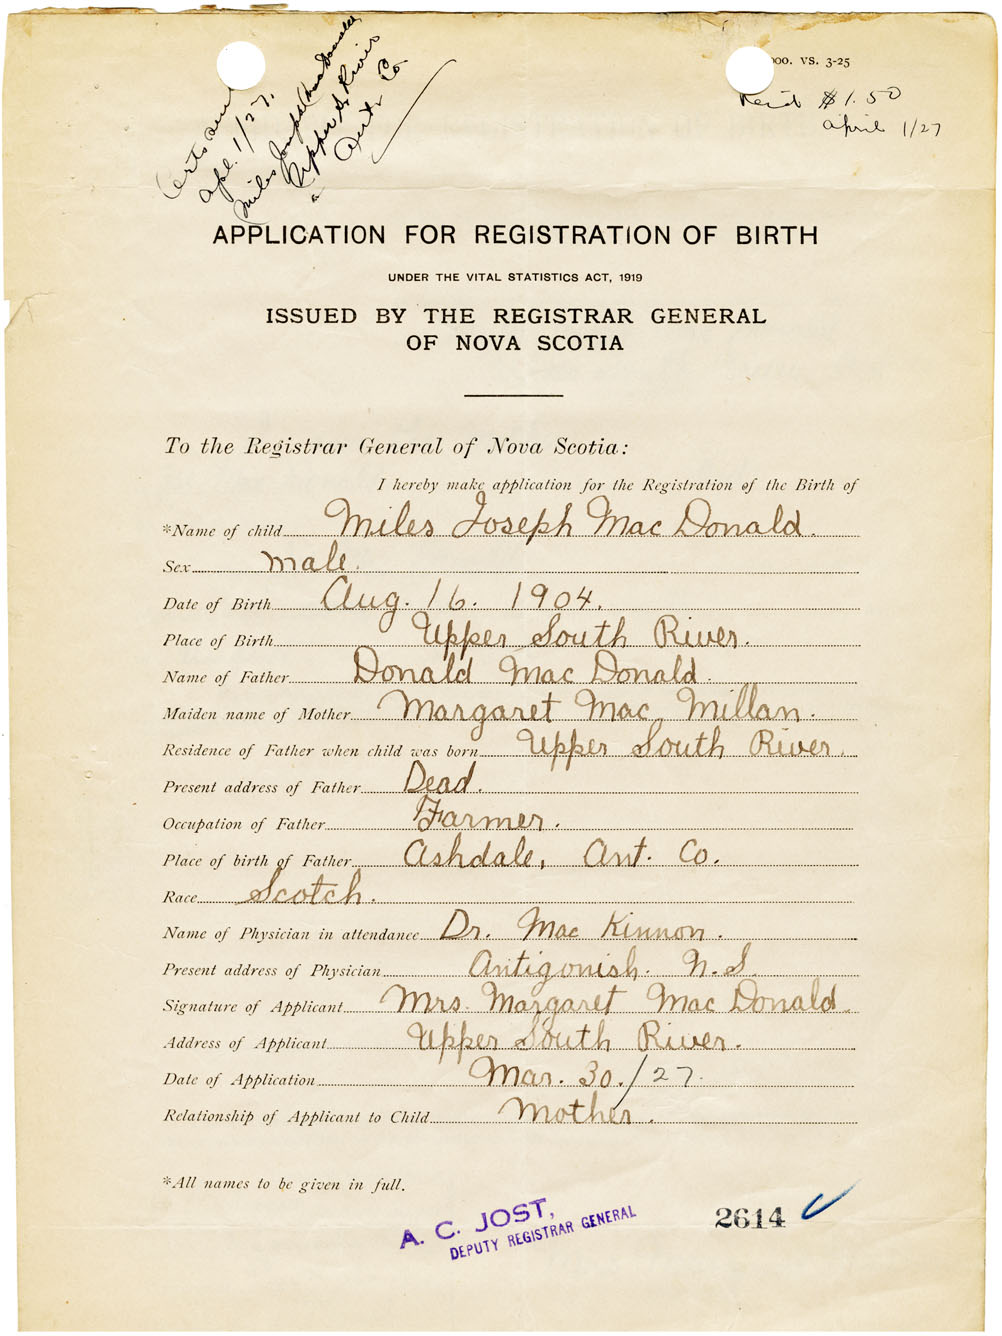 Certs sent
Apl. 1/27.
Miles Joseph MacDonald
Upper S. River
Ant Co
000. VS. 3-25
Rec'd $1.50
April 1/27
APPLICATION FOR REGISTRATION OF BIRTH
UNDER THE VITAL STATISTICS ACT, 1919
ISSUED BY THE REGISTRAR GENERAL
OF NOVA SCOTIA
To the Registrar General of Nova Scotia:
I hereby make application for the Registration of the Birth of
*Name of child Miles Joseph Mac Donald.
Sex male.
Date of Birth Aug. 16. 1904.
Place of Birth Upper South River.
Name of Father Donald Mac Donald.
Maiden name of Mother Margaret Mac Millan.
Residence of Father when child was born Upper South River.
Present address of Father Dead.
Occupation of Father Farmer.
Place of birth of Father Ashdale, Ant. Co.
Race Scotch.
Name of Physician in attendance Dr. Mac Kinnon.
Present address of Physician Antigonish. N.S.
Signature of Applicant Mrs. Margaret Mac Donald.
Address of Applicant Upper South River.
Date of Application Mar. 30./27.
Relationship of Applicant to Child Mother.
*All names to be given in full.
A. C. JOST,
DEPUTY REGISTRAR GENERAL
2614